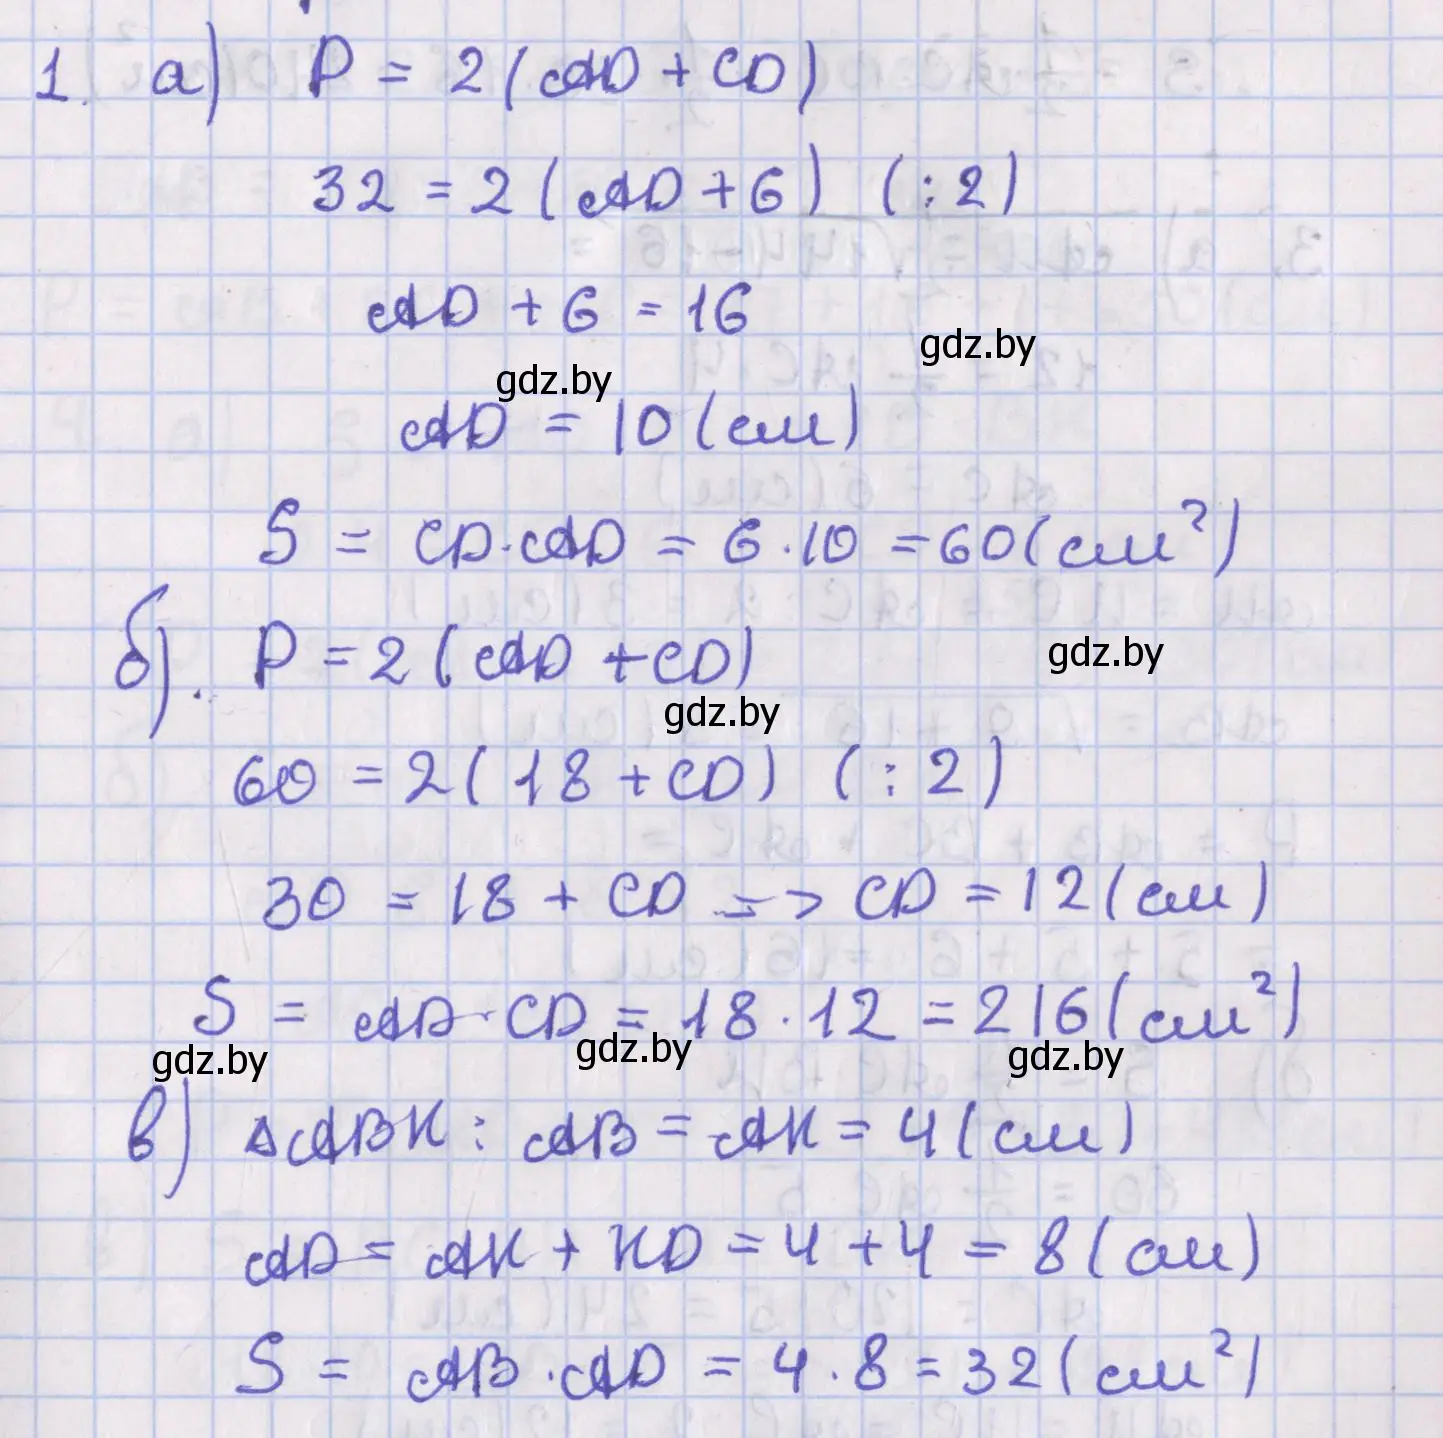 1. а) P = 2(AD + CD)
32 = 2(AD + 6) (:2)
AD + 6 = 16
gdz.by
gdz.by
AD = 10 (см)
S = CD·AD = 6·10 = 60 (см²)
б). P = 2(AD + CD)
gdz.by
gdz.by
60 = 2(18 + CD) (:2)
30 = 18 + CD => CD = 12 (см)
S = AD·CD = 18·12 = 216 (см²)
gdz.by gdz.by gdz.by
в) ΔABK: AB = AK = 4 (см)
AD = AK + KD = 4 + 4 = 8 (см)
S = AB·AD = 4·8 = 32 (см²)